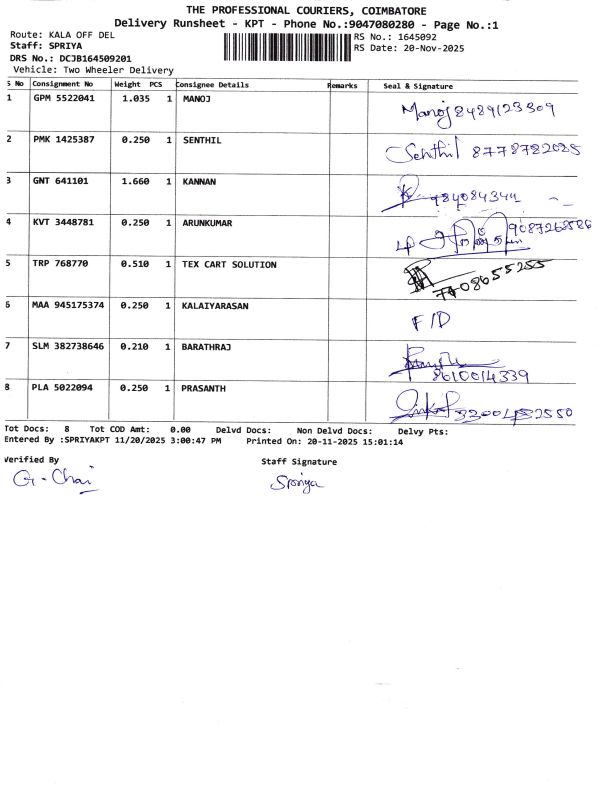 THE PROFESSIONAL COURIERS, COIMBATORE
Delivery Runsheet - KPT - Phone No.:9047080280 - Page No.:1
Route: KALA OFF DEL
RS No.: 1645092
Staff: SPRIYA
RS Date: 20-Nov-2025
DRS No.: DCJB164509201
Vehicle: Two Wheeler Delivery
S No Consignment No Weight PCS Consignee Details Remarks Seal & Signature
1 GPM 5522041 1.035 1 MANOJ Manoj 8489123309
2 PMK 1425387 0.250 1 SENTHIL Senthil 8778782085
3 GNT 641101 1.660 1 KANNAN
4 KVT 3448781 0.250 1 ARUNKUMAR
5 TRP 768770 0.510 1 TEX CART SOLUTION 7708655255
6 MAA 945175374 0.250 1 KALAIYARASAN F/D
7 SLM 382738646 0.210 1 BARATHRAJ 8610014339
8 PLA 5022094 0.250 1 PRASANTH
Tot Docs: 8 Tot COD Amt: 0.00 Delvd Docs: Non Delvd Docs: Delvy Pts:
Entered By :SPRIYAKPT 11/20/2025 3:00:47 PM Printed On: 20-11-2025 15:01:14
Verified By Staff Signature
G. Chai Spriya